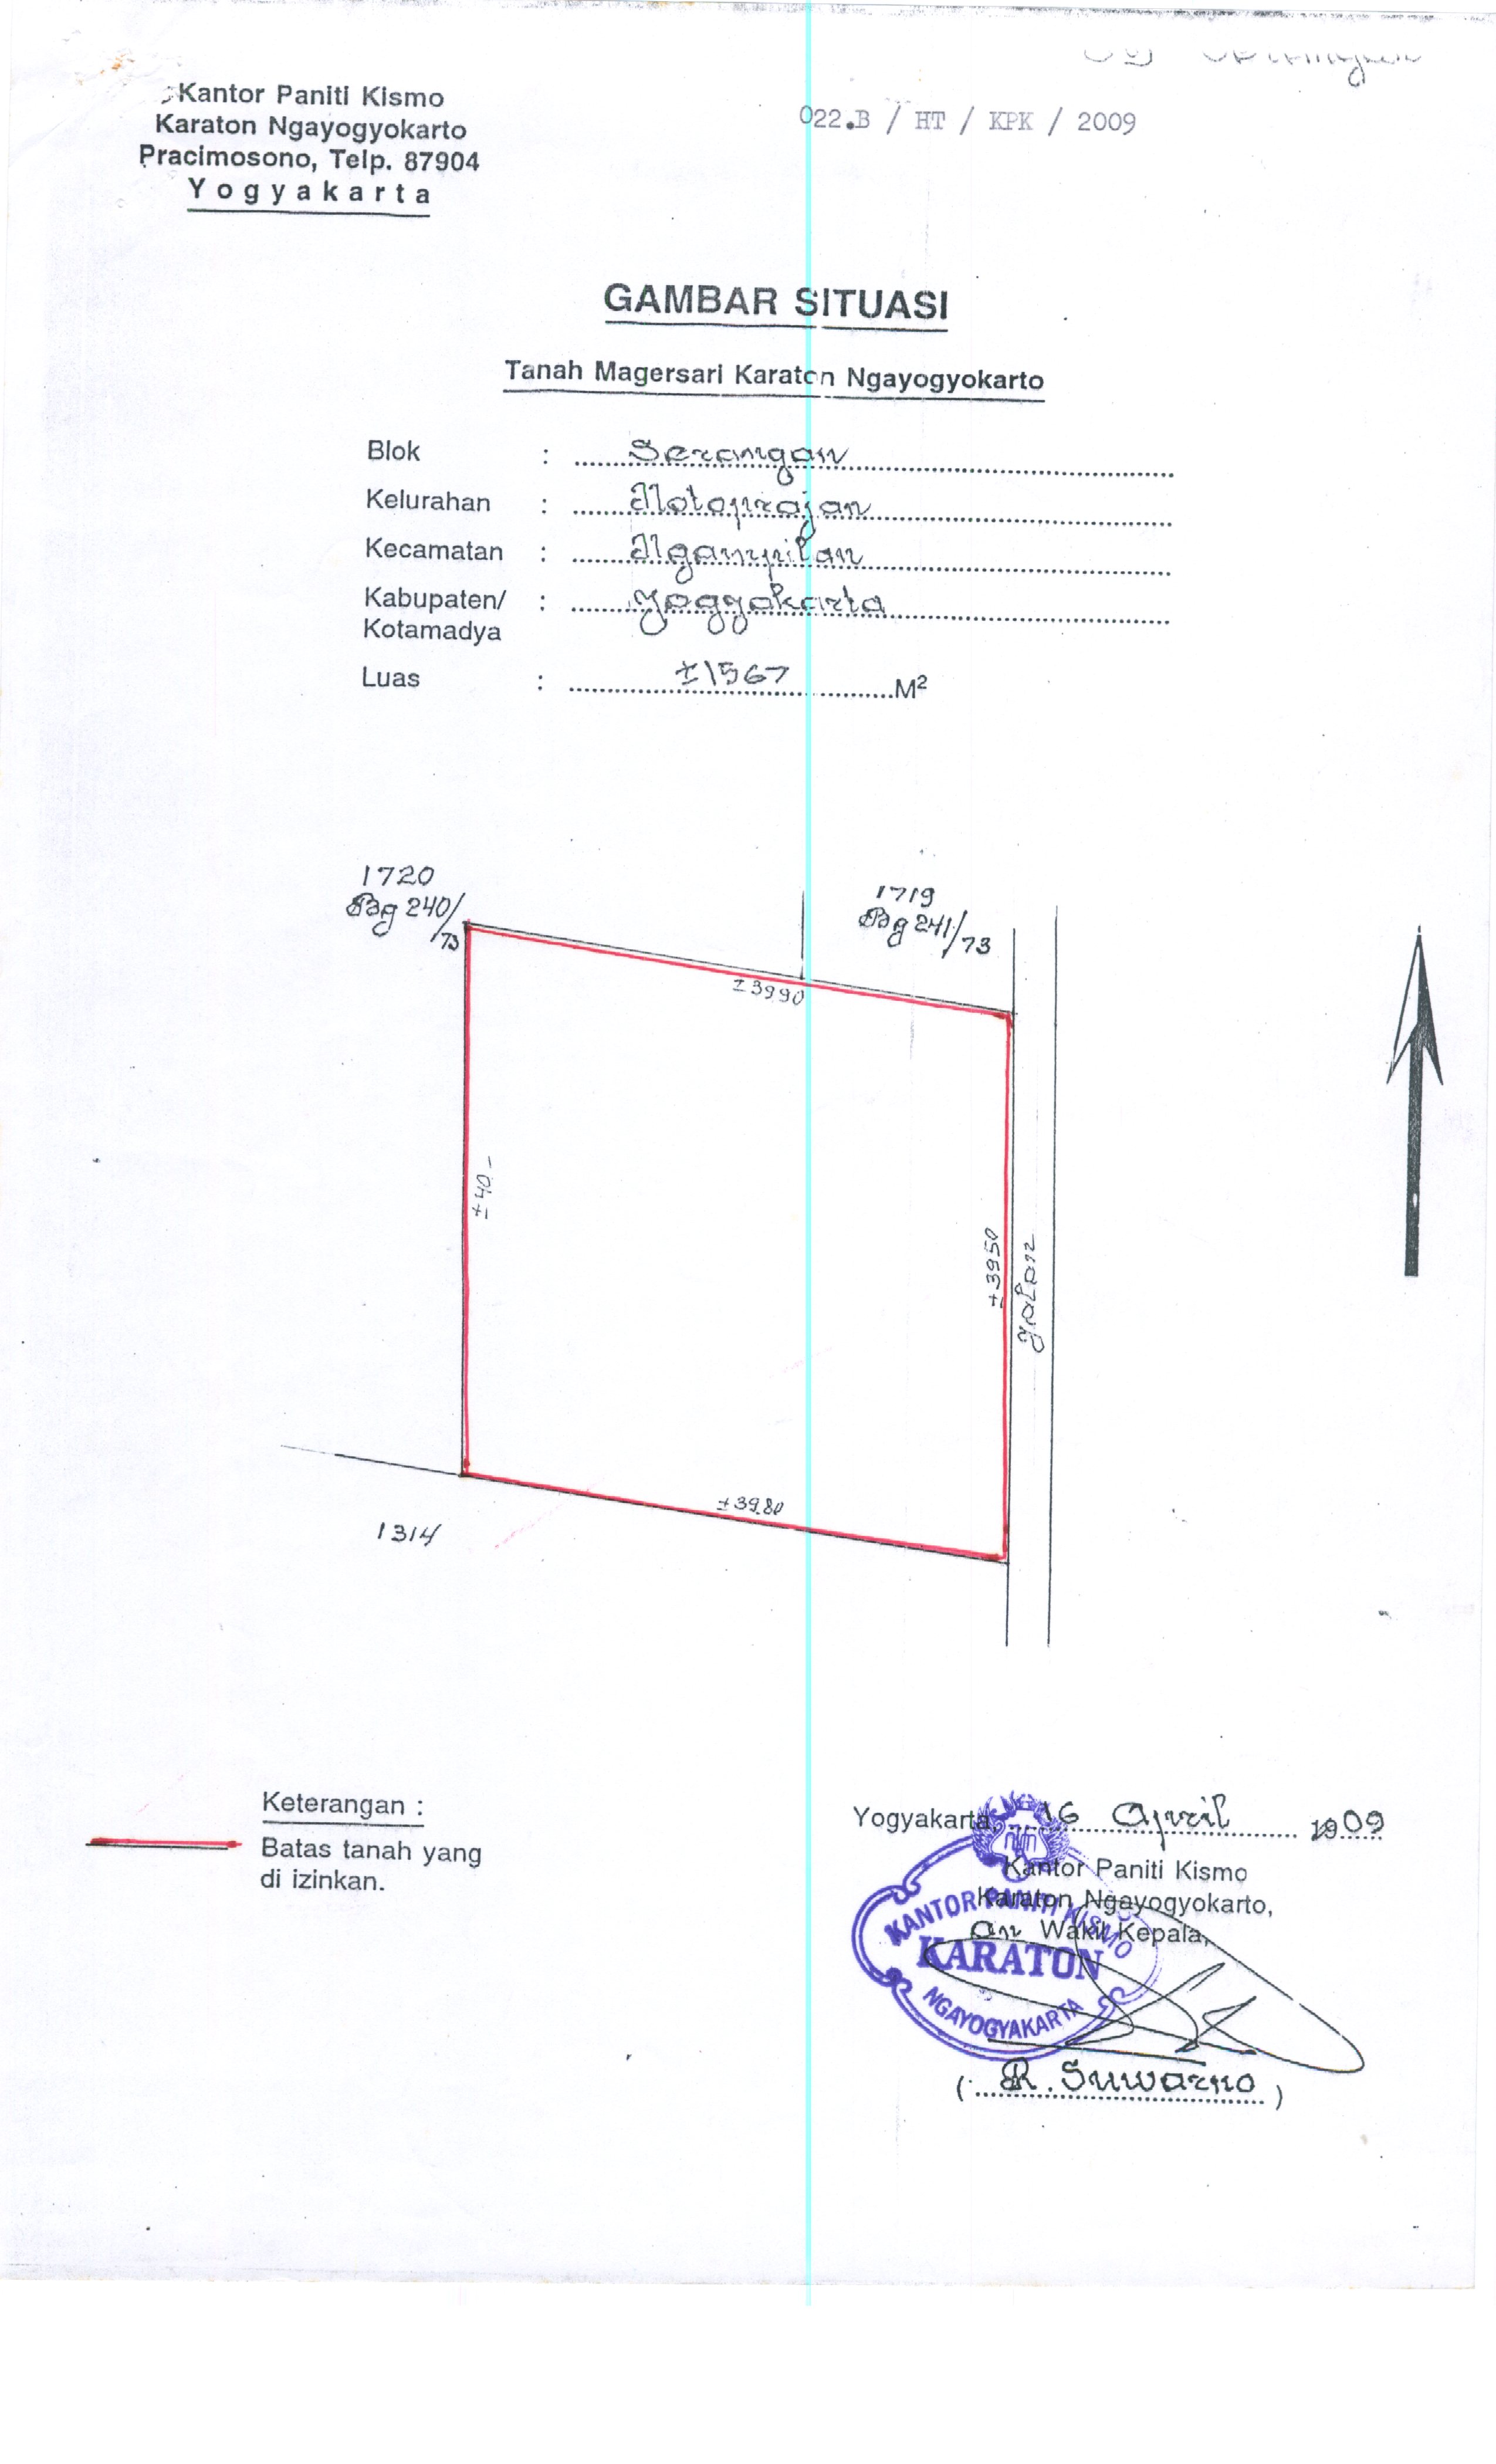 Kantor Paniti Kismo
Karaton Ngayogyokarto
Pracimosono, Telp. 87904
Yogyakarta
022.B / HT / KPK / 2009
GAMBAR SITUASI
Tanah Magersari Karaton Ngayogyokarto
Blok : Serangan
Kelurahan : Notoprajan
Kecamatan : Ngampilan
Kabupaten/ : Yogyakarta
Kotamadya
Luas : ±1567 M²
1720
Bg 240/73
1719
Bg 241/73
±3990
±40-
±3950
Jalan
±3980
1314
Keterangan :
Batas tanah yang
di izinkan.
Yogyakarta, 16 April 2009
Kantor Paniti Kismo
Karaton Ngayogyokarto,
an Wakil Kepala,
KANTOR PANITI KISMO
KARATON
NGAYOGYAKARTA
( R. Suwarno )